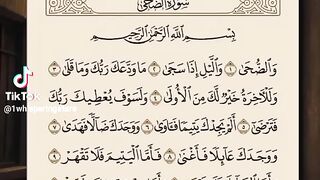 سُورَةُ الضُّحَىٰ
بِسْمِ اللَّهِ الرَّحْمَٰنِ الرَّحِيمِ
وَالضُّحَىٰ ١ وَاللَّيْلِ إِذَا سَجَىٰ ٢ مَا وَدَّعَكَ رَبُّكَ وَمَا قَلَىٰ ٣
وَلَلْآخِرَةُ خَيْرٌ لَّكَ مِنَ الْأُولَىٰ ٤ وَلَسَوْفَ يُعْطِيكَ رَبُّكَ
فَتَرْضَىٰ ٥ أَلَمْ يَجِدْكَ يَتِيمًا فَآوَىٰ ٦ وَوَجَدَكَ ضَالًّا فَهَدَىٰ ٧
وَوَجَدَكَ عَائِلًا فَأَغْنَىٰ ٨ فَأَمَّا الْيَتِيمَ فَلَا تَقْهَرْ ٩
TikTok